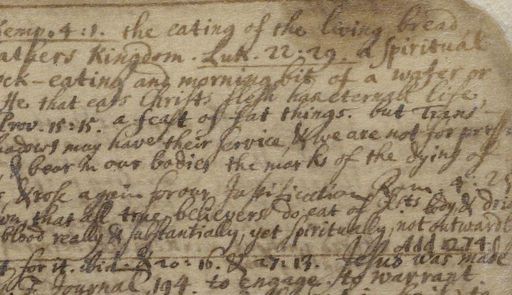 temp. 4:1. the eating of the living bread
athers Kingdom. Luk. 22:29. a spiritual
ock-eating and morning bit of a wafer or
He that eats Christs flesh hath eternal life
Prov. 15:15. a feast of fat things. but Trans
hadows may have their service, & we are not for press
& bear in our bodies the marks of the dying of
& rose again for our Justification Rom. 4:25
that all true believers do eat of Xts body & drin
blood really & substantially, yet spiritually, not outwardl
Add 1274
t, for it. ibid. & 20:16. & 27:13. Jesus was made
Journal 194. to engage to warrant